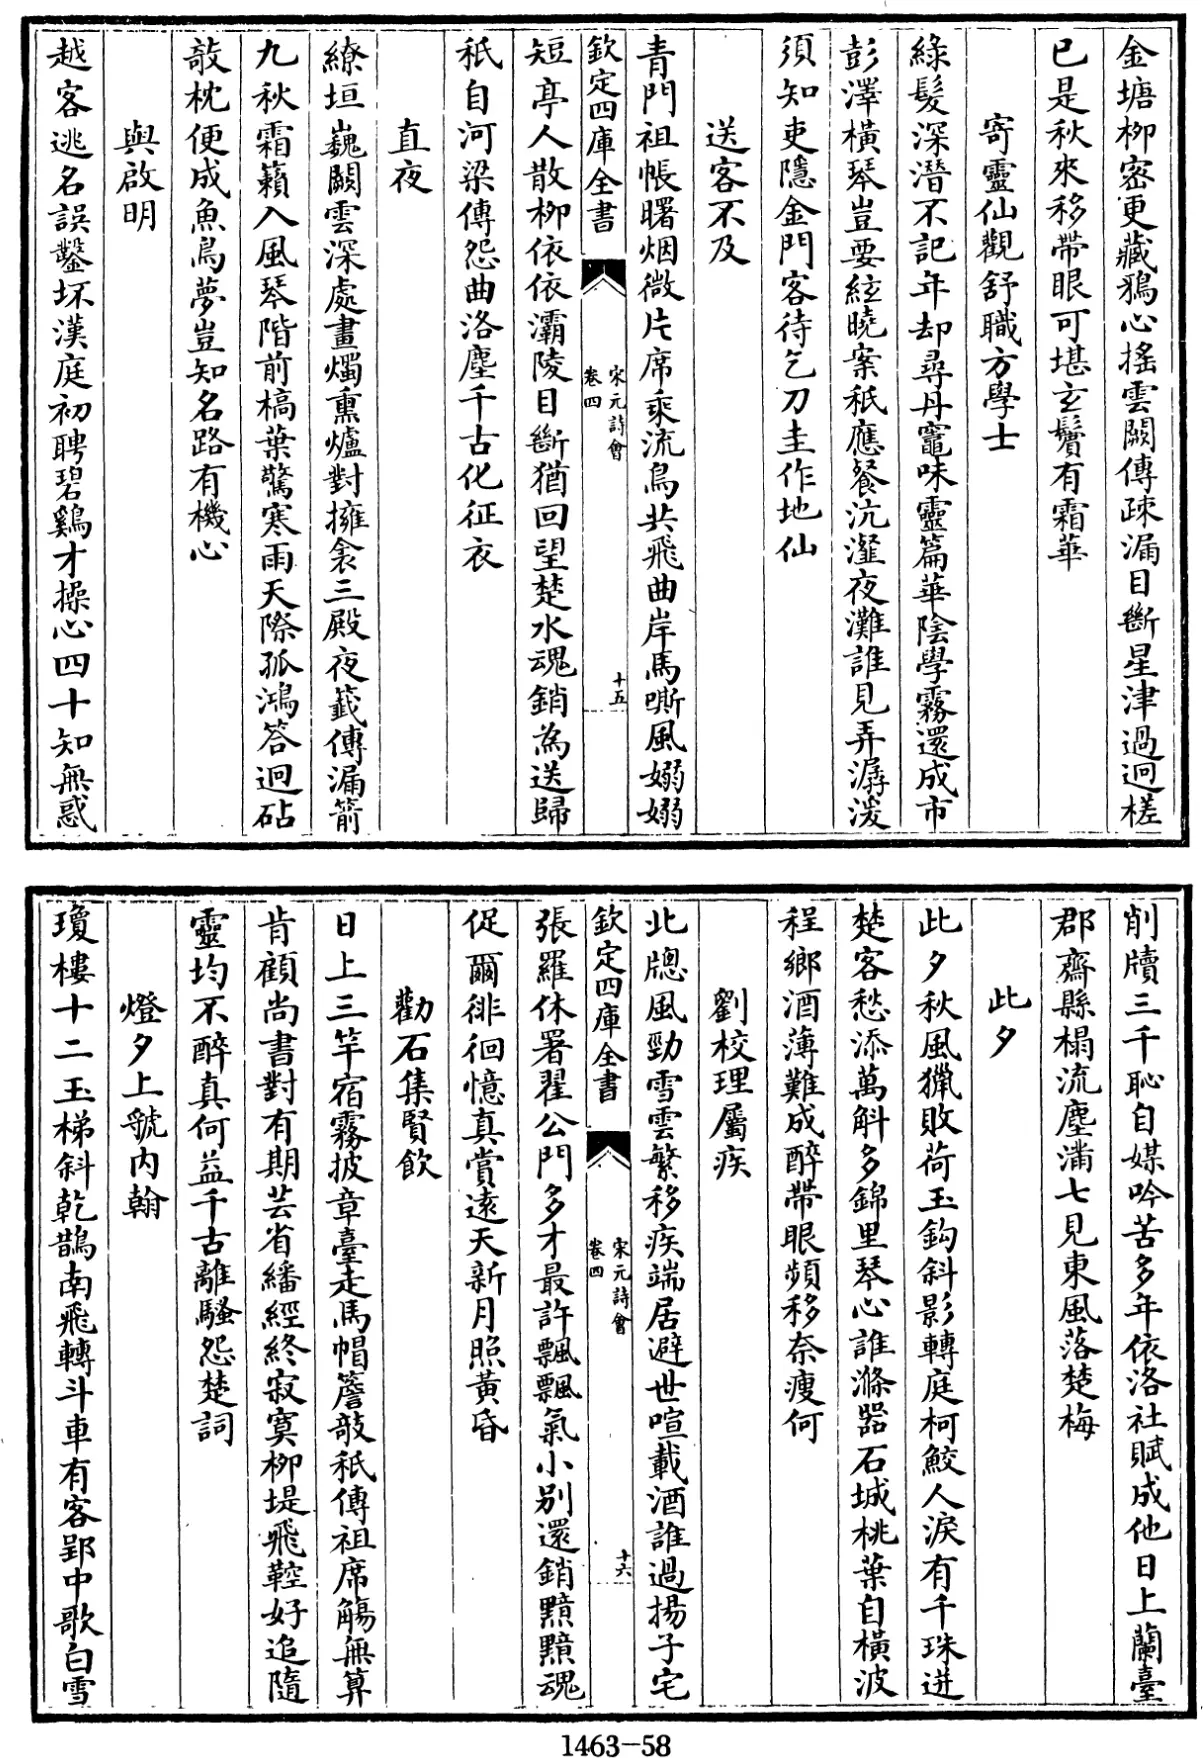 金塘柳密更藏鴉心搖雲闕傳疎漏目斷星津過迥槎
已是秋來移帶眼可堪玄鬢有霜華
寄靈仙觀舒職方學士
綠髮深潛不記年却尋丹竈味靈篇華陰學霧還成市
彭澤橫琴豈要絃曉案秖應餐沆瀣夜灘誰見弄潺湲
須知吏隱金門客待乞刀圭作地仙
送客不及
青門祖帳曙烟微片席乘流鳥共飛曲岸馬嘶風嫋嫋
欽定四庫全書
宋元詩會
卷四
十五
短亭人散柳依依灞陵目斷猶回望楚水魂銷為送歸
秖自河梁傳怨曲洛塵千古化征衣
直夜
繚垣巍闕雲深處畫燭熏爐對擁衾三殿夜籤傳漏箭
九秋霜籟入風琴階前槁葉驚寒雨天際孤鴻答迥砧
敧枕便成魚鳥夢豈知名路有機心
與啟明
越客逃名誤鑿坏漢庭初聘碧鷄才操心四十知無惑
削牘三千恥自媒吟苦多年依洛社賦成他日上蘭臺
郡齋縣榻流塵滿七見東風落楚梅
此夕
此夕秋風獵敗荷玉鈎斜影轉庭柯鮫人淚有千珠迸
楚客愁添萬斛多錦里琴心誰滌器石城桃葉自橫波
程鄉酒薄難成醉帶眼頻移奈瘦何
劉校理屬疾
北牕風勁雪雲繁移疾端居避世喧載酒誰過揚子宅
欽定四庫全書
宋元詩會
卷四
十六
張羅休署翟公門多才最許飄飄氣小別還銷黯黯魂
促爾徘徊憶真賞遠天新月照黃昏
勸石集賢飲
日上三竿宿霧披章臺走馬帽簷敧秖傳祖席觴無算
肯顧尚書對有期芸省繙經終寂寞柳堤飛鞚好追隨
靈均不醉真何益千古離騷怨楚詞
燈夕上虢內翰
瓊樓十二玉梯斜乾鵲南飛轉斗車有客郢中歌白雪
1463-58